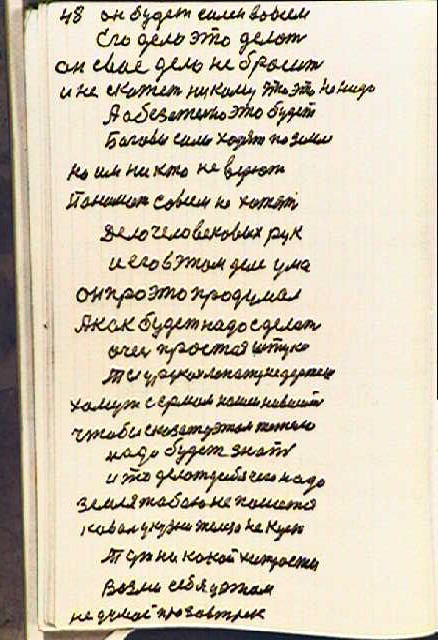 48 он будет силен во всем
Его дело это делот
он свае дело не бросит
и не скажет никаму что это не надо
А абезателно это будет
Боговы силы ходят по земли
но им ни кто не верют
Панимат совсем не хотят
Дело человековых рук
и его в этом деле ума
он про это продумал
А как будет надо сделат
очен простая штука
Ты у руках лопату не держиш
хамут с ермом
чтобы сказат у этом
надо будет знат
и что делот чего надо
земля табаю не пашется
железо не куеш
Ты ни какой
Возми себя у этом
не думай про завтрек